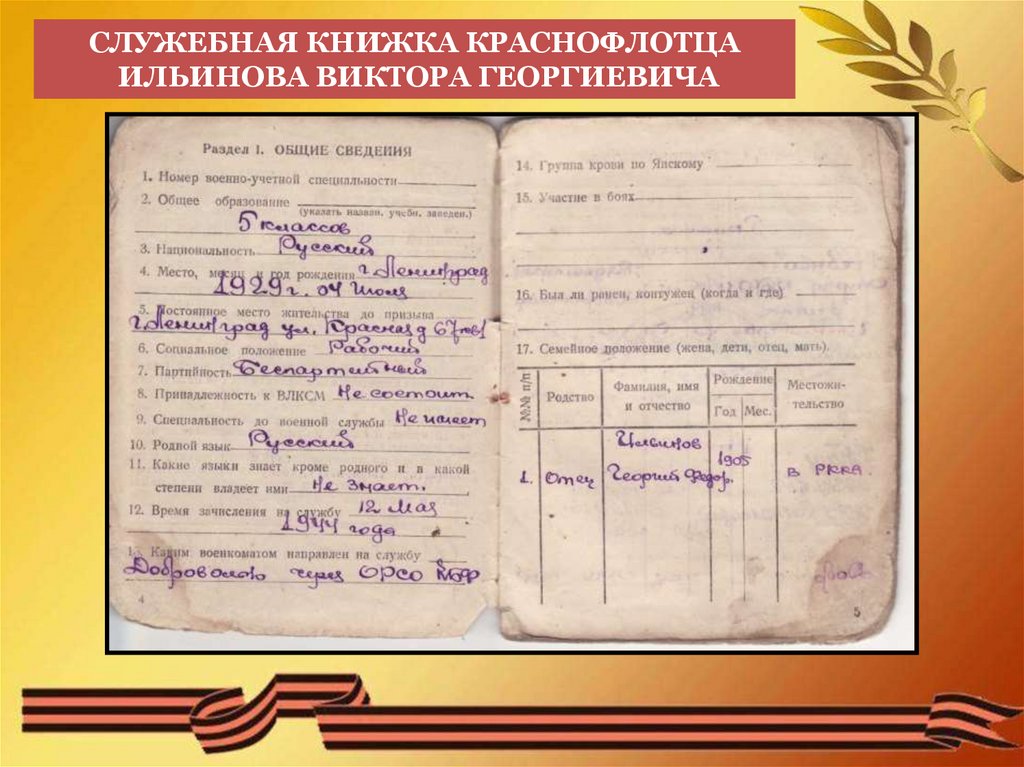 СЛУЖЕБНАЯ КНИЖКА КРАСНОФЛОТЦА
ИЛЬИНОВА ВИКТОРА ГЕОРГИЕВИЧА
Раздел I. ОБЩИЕ СВЕДЕНИЯ
1. Номер военно-учетной специальности
2. Общее образование
(указать назван. учебн. заведен.)
5 классов
3. Национальность Русский
4. Место, месяц и год рождения г. Ленинград
1929 г. 04 Июля
5. Постоянное место жительства до призыва
г. Ленинград ул. Красная д 67
6. Социальное положение Рабочий
7. Партийность Беспартийный
8. Принадлежность к ВЛКСМ Не состоит
9. Специальность до военной службы Не имеет
10. Родной язык Русский
11. Какие языки знает кроме родного и в какой
степени владеет ими Не знает.
12. Время зачисления на службу 12 Мая
1944 года
13. Каким военкоматом направлен на службу
Добровольно через ОРСО КБФ
4
14. Группа крови по Янскому
15. Участие в боях
16. Был ли ранен, контужен (когда и где)
17. Семейное положение (жена, дети, отец, мать).
№№ п/п Родство Фамилия, имя и отчество Рождение Год Мес. Местожительство
Ильинов
1. Отец Георгий Федор. 1905 в РККА.
5